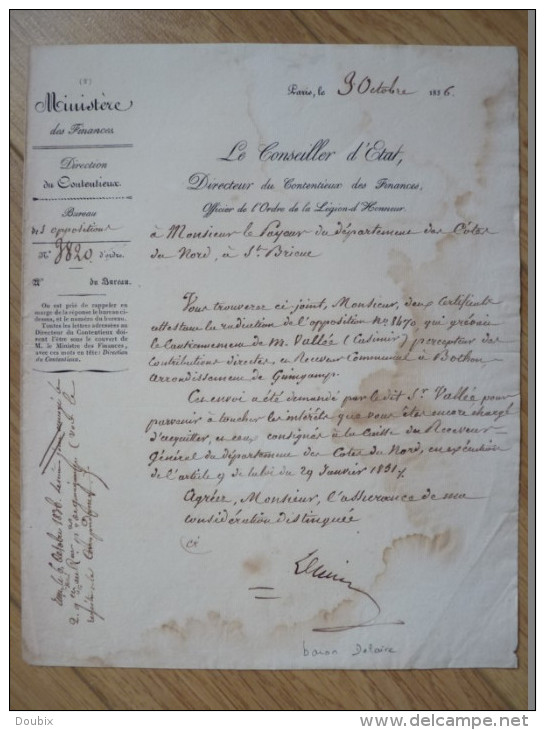 (8)
Ministère
des Finances.
Direction
du Contentieux.
Bureau
des oppositions
N° 3820 d'ordre.
N° du Bureau.
On est prié de rappeler en
marge de la réponse le bureau ci-
dessus, et le numéro du bureau.
Toutes les lettres adressées au
Directeur du Contentieux doi-
vent l'être sous le couvert de
M. le Ministre des Finances,
avec ces mots en tête: Direction
du Contentieux.
Paris, le 3 Octobre 1836.
Le Conseiller d'Etat,
Directeur du Contentieux des Finances,
Officier de l'Ordre de la Légion-d'Honneur.
à Monsieur le Payeur du département des Côtes
du Nord, à St. Brieuc
Vous trouverez ci joint, Monsieur, deux Certificats
attestant la radiation de l'opposition n° 1470, qui grévait
le Cautionnement de M. Vallée (Casimir) percepteur des
Contributions directes, et Receveur Communal à Bothoa
arrondissement de Guingamp.
Cet envoi a été demandé par le dit Sr. Vallée pour
parvenir à toucher les intérêts que vous êtes encore chargé
d'acquitter, et ceux consignés à la Caisse du Receveur-
Général du département des Côtes du Nord, en exécution
de l'article 9 de la loi du 29 Janvier 1831.
Agréez, Monsieur, l'assurance de ma
considération distinguée
le 5 Octobre 1836
baron Delaire
Doubix
www.delcampe.net